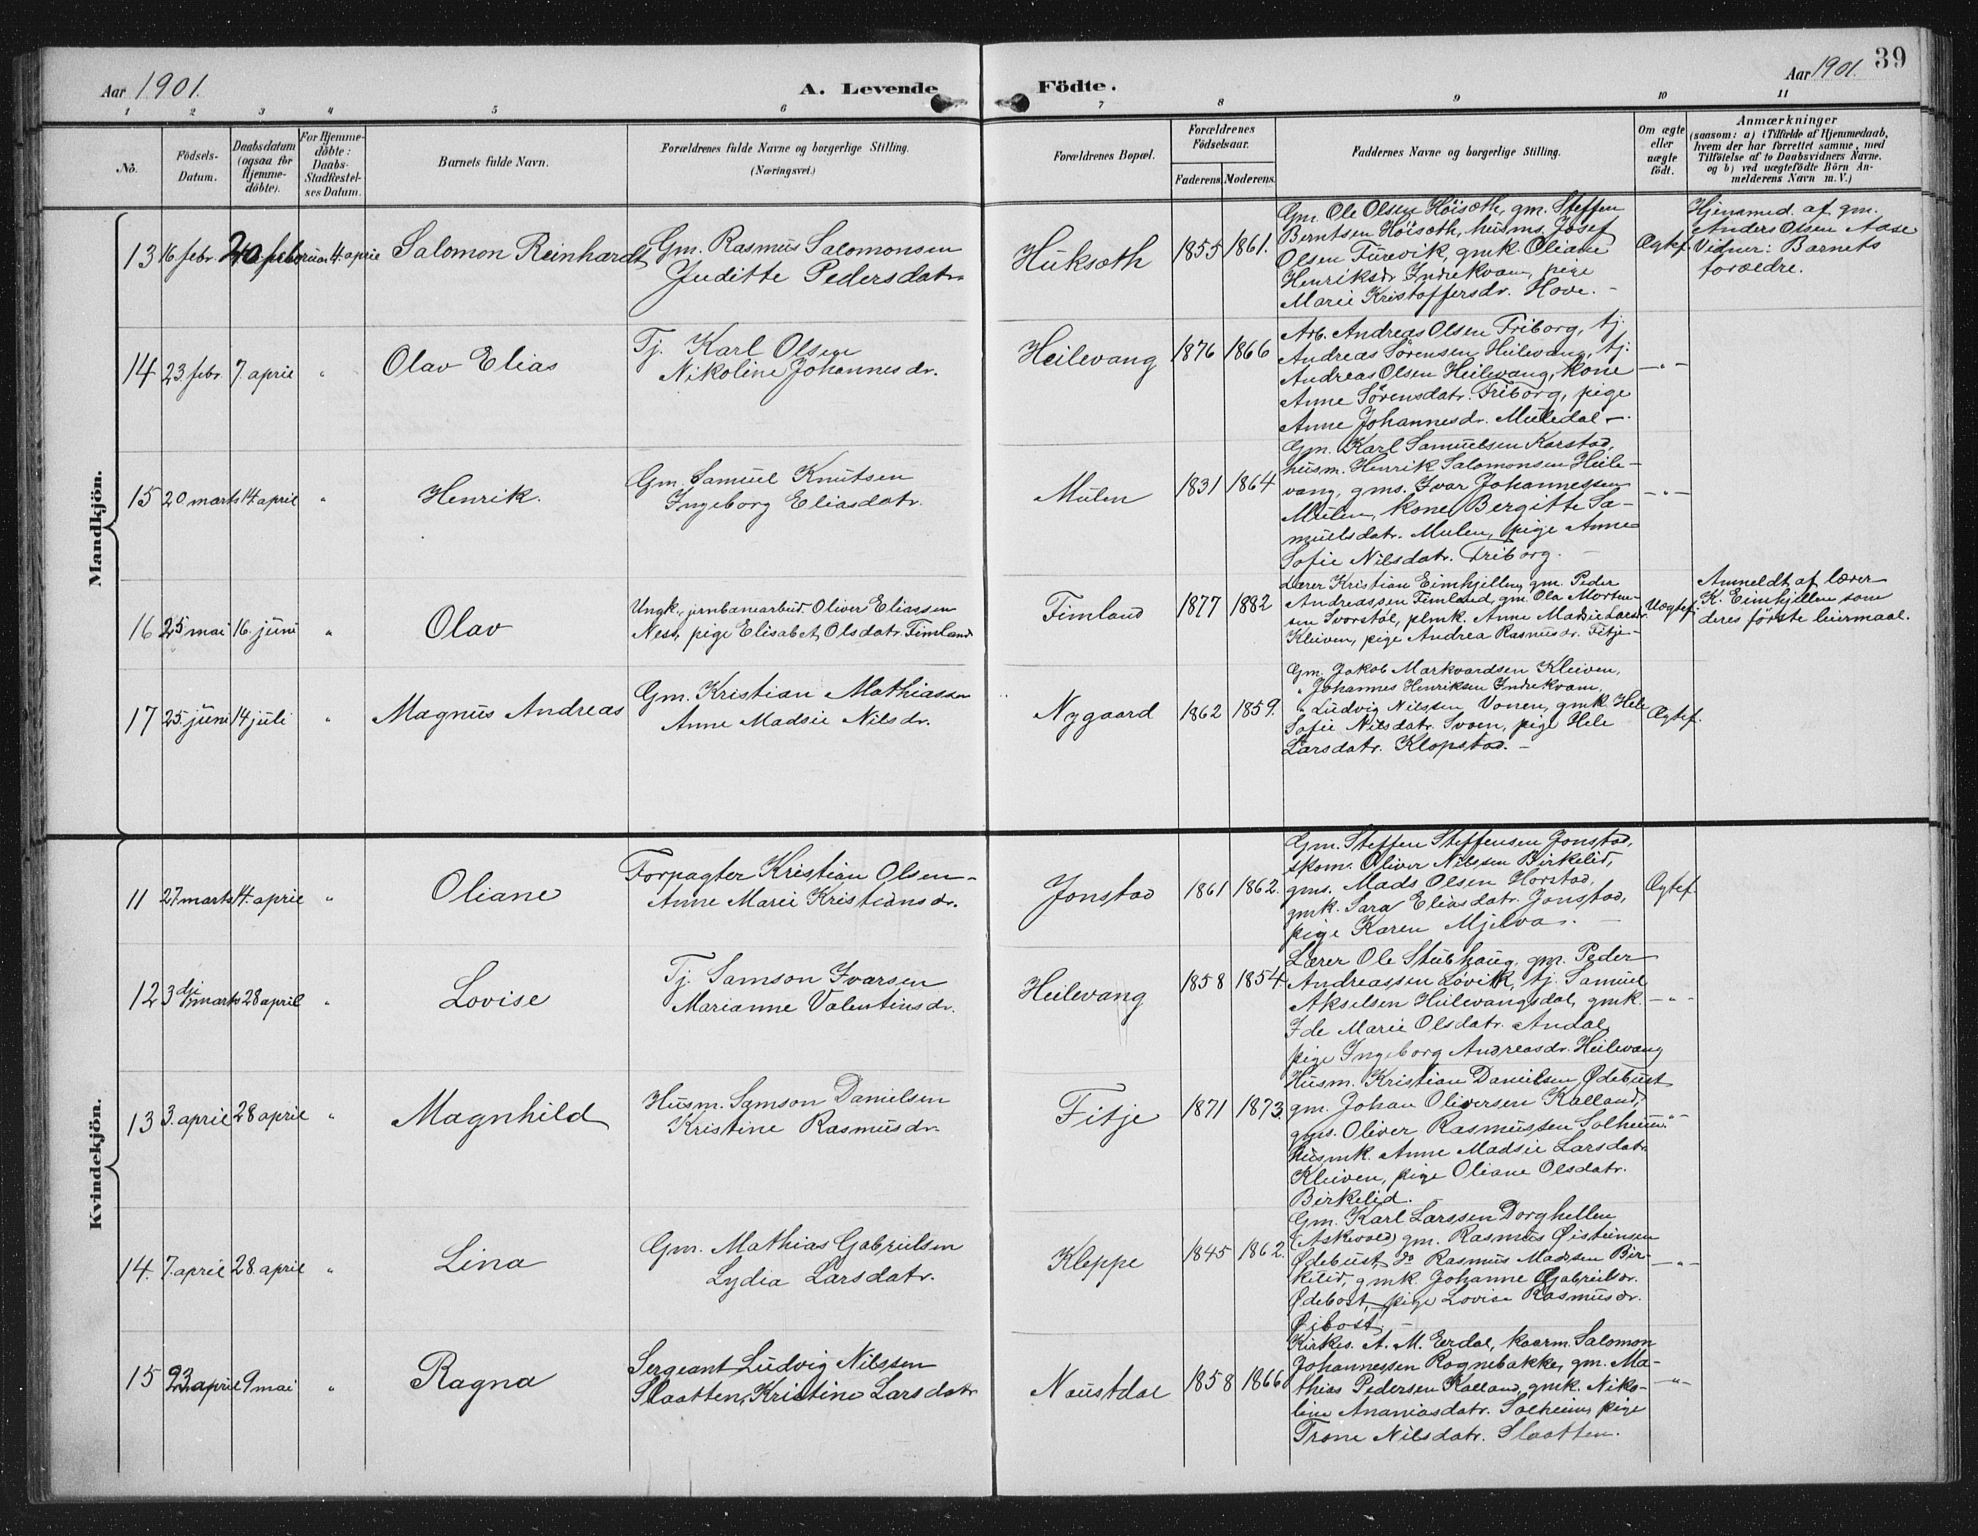 Aar 1901.
A. Levende
Födte.
Aar 1901.
39
1 2 3 4 5 6 7 8 9 10 11
No.
Födsels-
Datum.
Daabsdatum
(ogsaa for
Hjemme-
döbte).
For Hjemme-
döbte:
Daabs-
Stadfæstel-
ses Datum.
Barnets fulde Navn.
Forældrenes fulde Navne og borgerlige Stilling.
(Næringsvei.)
Forældrenes Bopæl.
Forældrenes
Födselsaar.
Faderens. Moderens.
Faddernes Navne og borgerlige Stilling.
Om ægte
eller
uægte
födt.
Anmærkninger
(saasom: a) i Tilfælde af Hjemmedaab,
hvem der har forrettet samme, med
Tilföielse af to Daabsvidners Navne,
og b) ved uægtefödte Börn An-
melderens Navn m. V.)
Mandkjön.
13 16 febr. 20 februar 14. april Salomon Reinhardt
Gm. Rasmus Salomonsen
Juditte Pedersdatr.
Huksæth 1855 1861.
Gm. Ole Olsen Höisæth, gm. Steffen
Berntsen Höisæth, husms. Josef
Olsen Furevik, gmk. Oliane
Henriksdr. Indrekvam, pige
Marie Kristoffersdr. Hove. -
Ægtef.
Hjemmed. af gm.
Anders Olsen Aase
Vidner: Barnets
forældre.
14 23 febr. 7 april " Olav Elias
Tj. Karl Olsen
Nikoline Johannesdr.
Heilevang 1876 1866
Arb. Andreas Olsen Friborg, tj.
Andreas Sörensen Heilevang, tj.
Andreas Olsen Heilevang, kone
Anne Sörensdatr. Friborg, pige
Anne Johannesdr. Muledal -.
-"-
15 20 marts 14 april " Henrik.
Gm. Samuel Knutsen
Ingeborg Eliasdatr.
Mulen 1831 1864
Gm. Karl Samuelsen Karstad,
husm. Henrik Salomonsen Heile-
vang, gms. Ivar Johannessen
Mulen, kone Bergitte Sa-
muelsdatr. Mulen, pige Anne
Sofie Nilsdatr. Friborg. -
-"-
16 25 mai 16. juni " Olav
Ungk., jrnbanearbeid. Oliver Eliassen
Ness, pige Elisabet Olsdatr. Fimland
Fimland 1877 1882
Lærer Kristian Eimhjellen, gm. Peder
Andreassen Fimland, gm. Ola Morten-
sen Svorstöl, plmk. Anne Madsie Larsdr.
Kleiven, pige Andrea Rasmusdr. Fitje -
Uægtef.
Anmeldt af lærer
K. Eimhjellen som
deres förste leiermaal.
17 25 juni 14 juli " Magnus Andreas
Gm. Kristian Mathiassen
Anne Madsie Nilsdr.
Nygaard 1862 1859.
Gm. Jakob Markvardsen Kleiven,
" Johannes Henriksen Indrekvam,
" Ludvig Nilssen Vonen, gmk. Hele
Sofie Nilsdatr. Svoen, pige Hele
Larsdatr. Klopstad. -
Ægtef.
Kvindekjön.
11 27 marts 14. april " Oliane
Forpagter Kristian Olsen -
Anne Marie Kristiansdr.
Jonstad 1861 1862.
Gm. Steffen Steffensen Jonstad,
skom. Oliver Nilssen Birkelid,
gms. Mads Olsen Horstad,
gmk. Sara Eliasdatr. Jonstad,
pige Karen Mjelva. -
Ægtef.
12 3die marts 28 april " Lovise
Tj. Samson Ivarsen
Marianne Valentinsdr.
Heilevang 1858 1854
Lærer Ole Stubhaug, gm. Peder
Andreassen Lövik, tj. Samuel
Akselsen Heilevangsdal, gmk.
Ide Marie Olsdatr. Andal,
pige Ingeborg Andreasdr. Heilevang
-"-
13 3. april 28 april " Magnhild
Husm. Samson Danielsen
Kristine Rasmusdr.
Fitje 1871 1873.
Husm. Kristian Danielsen Ödebust
gm. Johan Oliversen Kalland,
gms. Oliver Rasmussen Solheim.
husmk. Anne Madsie Larsdatr.
Kleiven, pige Oliane Olsdatr.
Birkelid.
-"-
14. 7. april 28. april " Lina
Gm. Mathias Gabrielsen
Lydia Larsdatr.
Kleppe 1845 1862.
Gm. Karl Larssen Dorghellen
(Askvold) gm. Rasmus Öisteinsen
Ödebust, do Rasmus Madsen Bir-
kelid, gmk. Johanne Gabrielsdr.
Ödebost, pige Lovise Rasmusdr.
Öibost. -
-"-
15 23 april 9 mai " Ragna
Sergeant Ludvig Nilssen
Slaatten, Kristine Larsdatr.
Naustdal 1858 1866
Kirkes. A. M. Erdal, kaarm. Salomon
Johannessen Rognebakke, gm. Ma-
thias Pedersen Kalland, gmk. Niko-
line Ananiasdatr. Solheim, pige
Trone Nilsdatr. Slaatten.
-"-